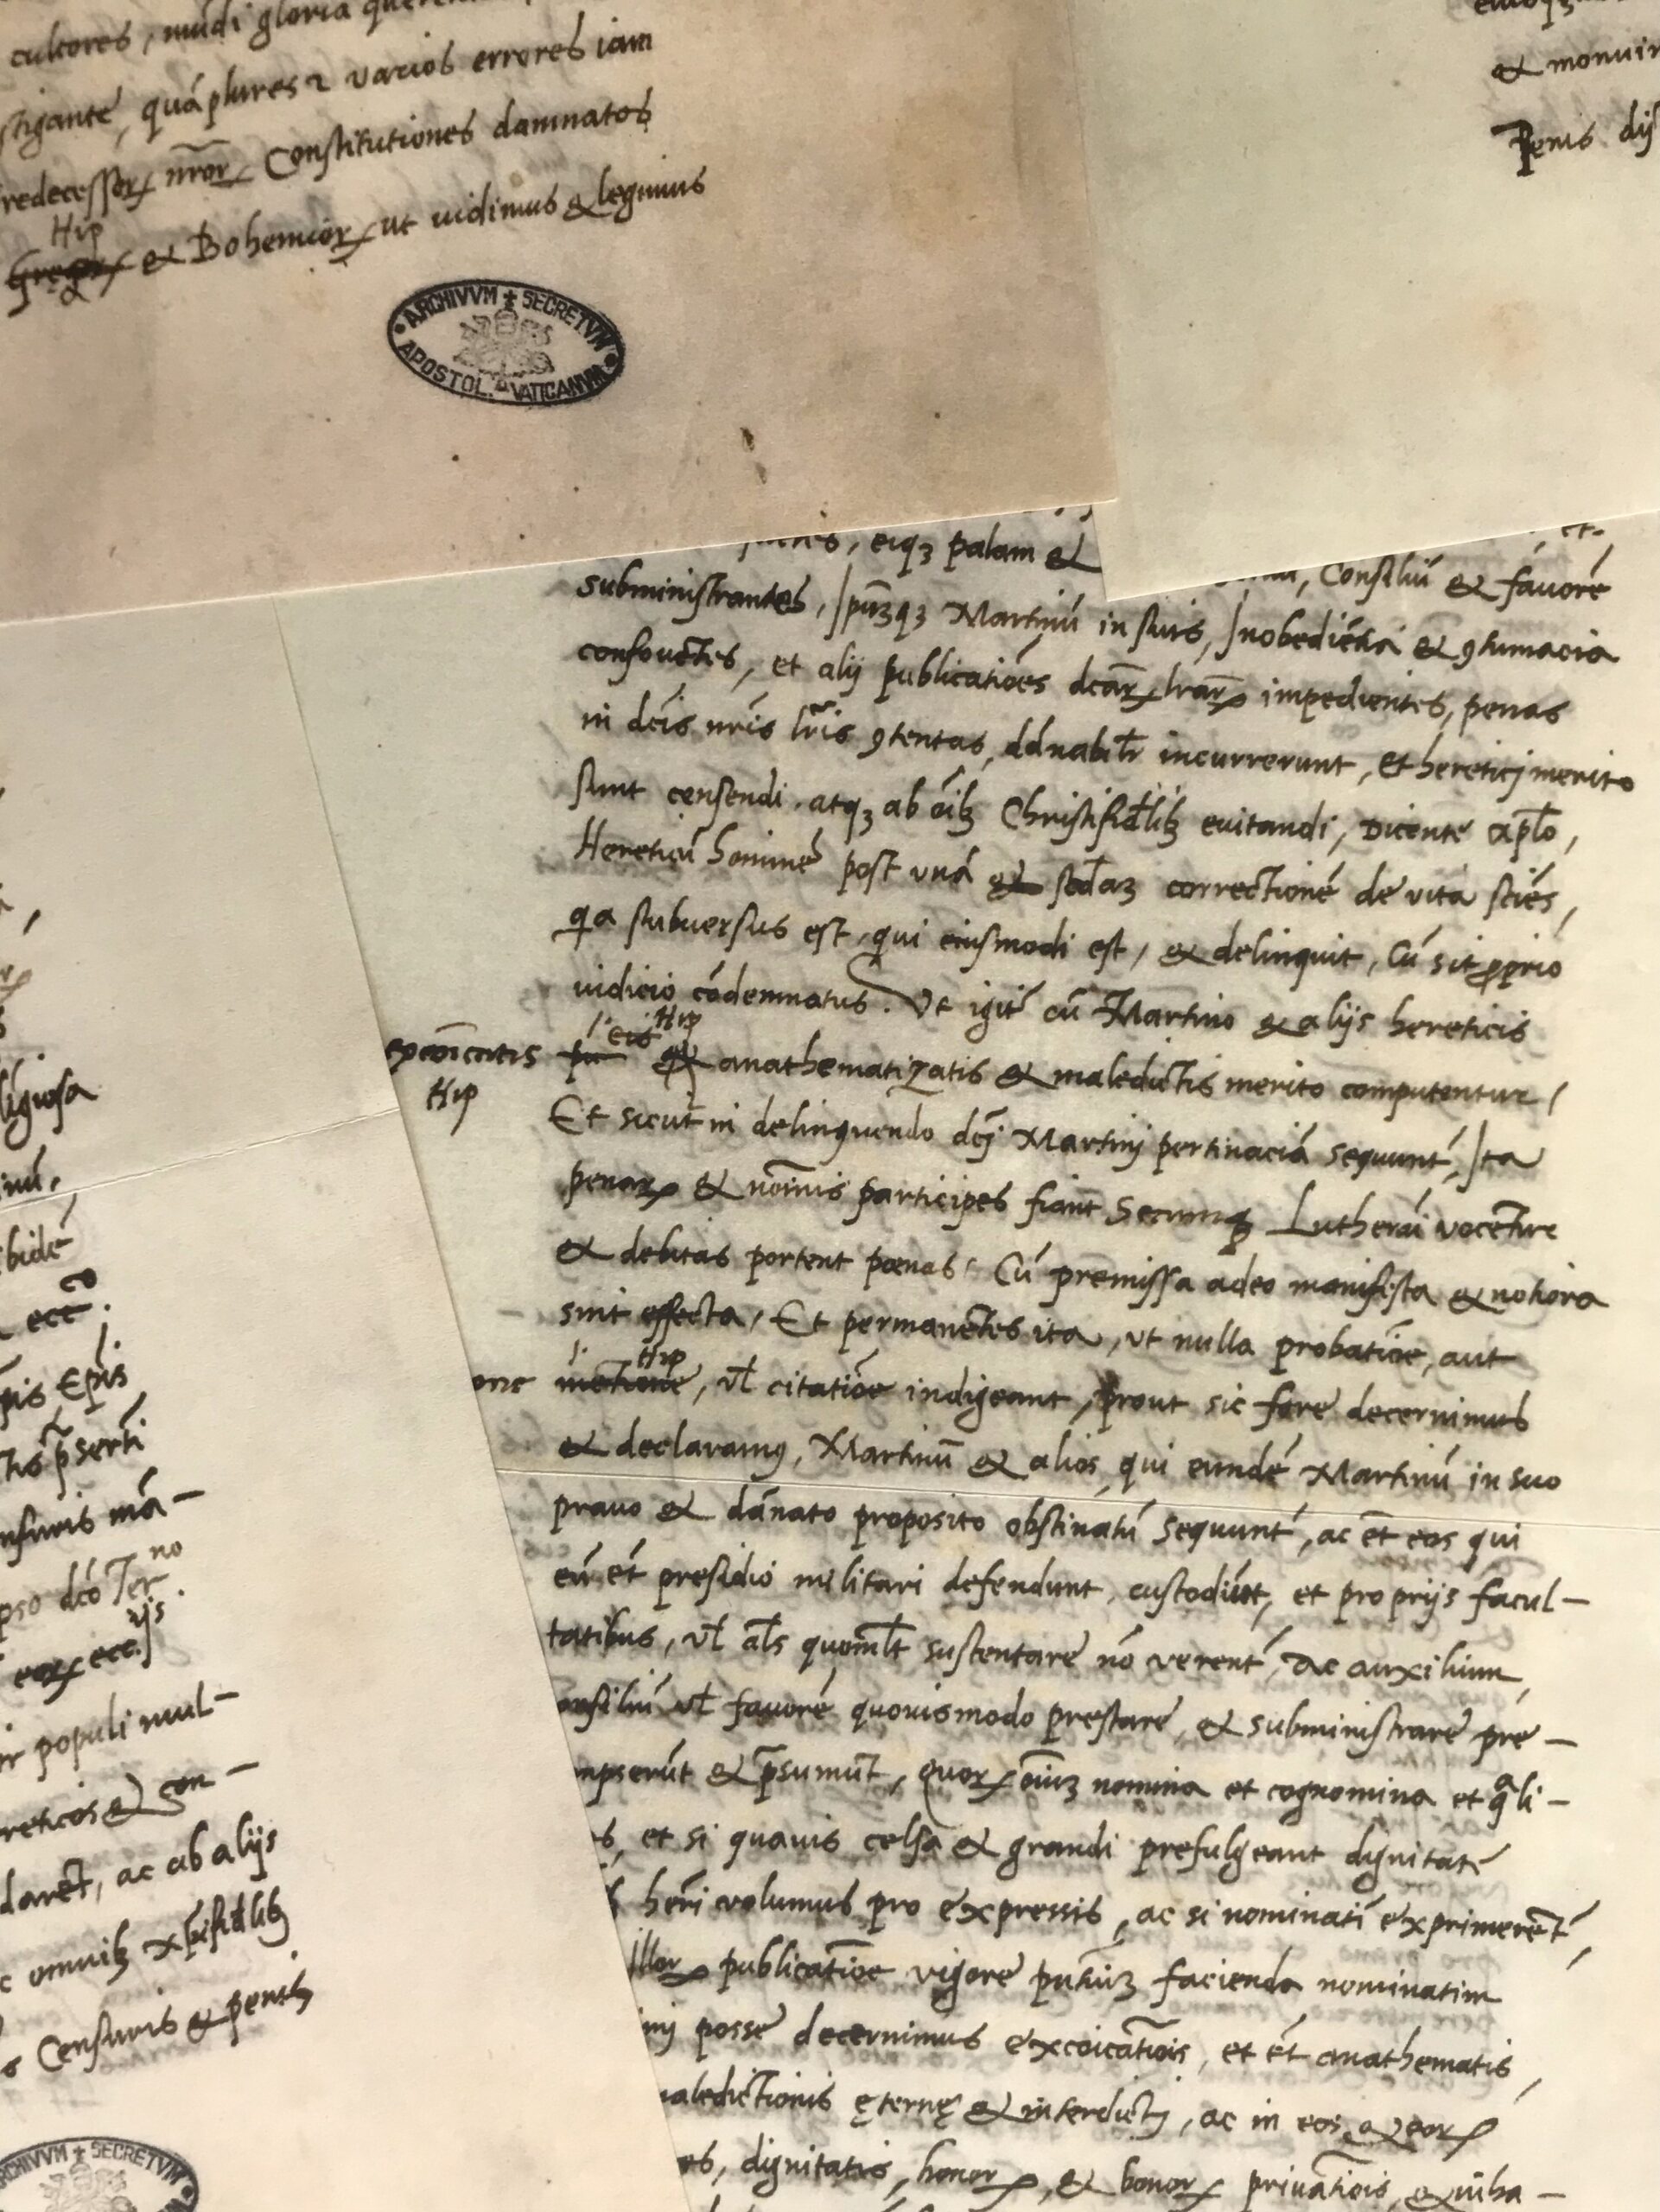 cultores, mūdi gloria
stigante, quāplures & varios errores iam
redecessorꝝ nr̄orꝝ Constitutiones damnatos
Hip
& Bohemiorꝝ ut uidimus & legimus
ARCHIVVM SECRETVM APOSTOL. VATICANVM
& monuir
Penis dij
eiqꝫ palam &
Consiliū & fauore
subministrantes, Ip̄umqꝫ Martinū in suis, Inobediētia & ꝯtumacia
confouētes, et alij publicatiōes dc̄arꝝ lr̄arꝝ impedientes, penas
in dc̄is nr̄is lr̄is ꝯtentas, dānabilr̄ incurrerunt, et heretici merito
sunt censendi, atqꝫ ab oīb Christifidelib euitandi, Dicente apl̄o,
Hereticū hominē post unā & secd̄aꝫ correctionē de vita sciēs,
qa subuersus est, qui eiusmodi est, & delinquit, Cū sit proprio
iudicio cōdemnatus. Vt igit̄ cū Martino & alijs hereticis
eis Hip
excōicatis & anathematizatis & maledictis merito computentur,
Hip
Et sicut in delinquendo dc̄j Martinj pertinaciā sequunt̄, Ita
penarꝝ & nōminis participes fiant Secumqꝫ Lutherai vocentur
& debitas portent pœnas. Cū premissa adeo manifesta & notiora
sint effecta, Et permanētes ita, ut nulla probatiōe, aut
Hip
one, vl̄ citatiōe indigeant, prout sic fore decernimus
& declaramꝰ, Martinū & alios, qui eundē Martinū in suo
prauo & dānato proposito obstinatū sequunt̄, ac et̄ eos qui
eū et̄ presidio militari defendunt, custodiūt, et proprijs facul–
tatibus, vl̄ al̄s quoml̄t sustentare nō verent̄, ac auxilium,
onsiliū vl̄ fauorē quouismodo prestare, & subministrare pre–
mpserūt & p̄sumūt, quorꝝ oīuꝫ nomina et cognomina et qali–
s, et si quauis celsa & grandi prefulgeant dignitate
hēri volumus pro expressis, ac si nominatī exprimerēt̄,
Illorꝝ publicatiōe vigore pn̄tiūꝫ facienda nominatim
mj posse decernimus excōicatiōis, et et̄ anathematis,
aledictionis ęternę & interdictj, ac in eos, & eorꝝ
es, dignitatis, honorꝝ, & bonorꝝ priuatiōis, & inha–
ligiosa
inū,
bidē
co
ecc̄.
pis, Ep̄is
tis p̄serti
nsuris mā–
pso dc̄o Terno.
eorꝝ ecc.ijs
r populi mul–
reticos & con–
daret̄, ac ab alijs
c omnib xp̄ifidelib
s Censuris & penis
ARCHIVVM SECRETVM